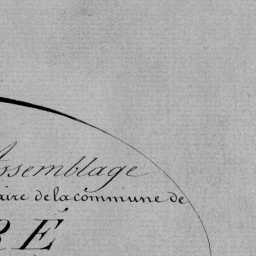 Assemblage
aire de la commune de
RÉ